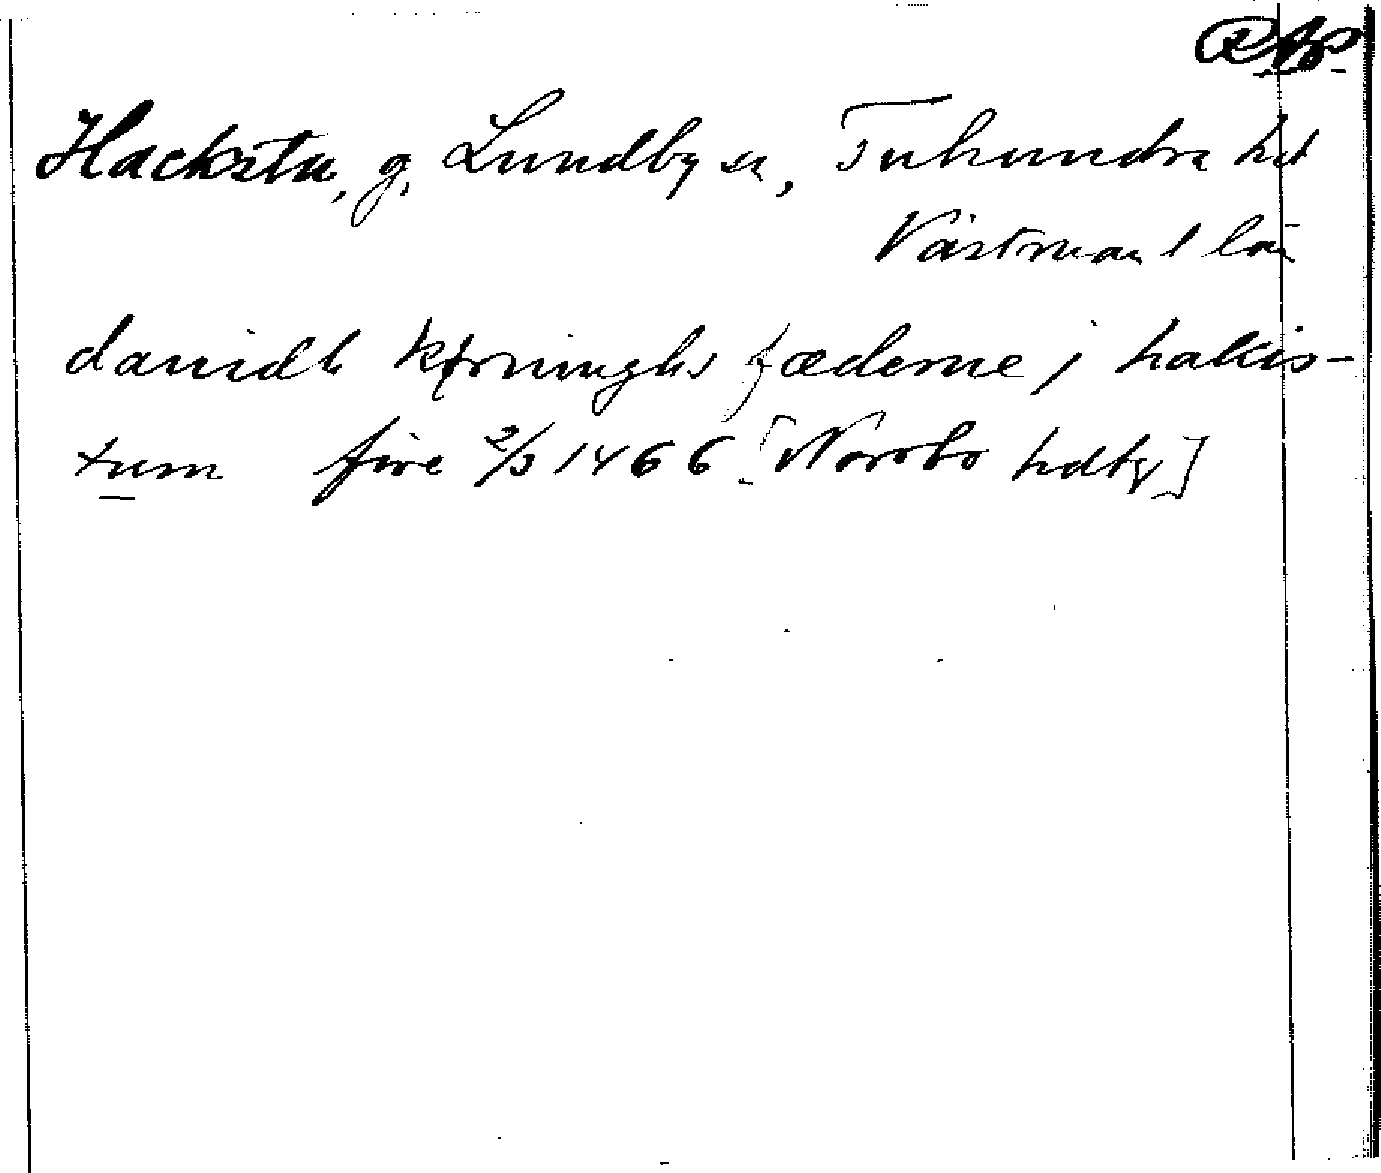 Hacksta, g, Lundby sn, Tuhundra hd
Västmanl län
dauidh kørninghs fæderne j hakis-
tum före 2/3 1466 [Norrbo hdby]